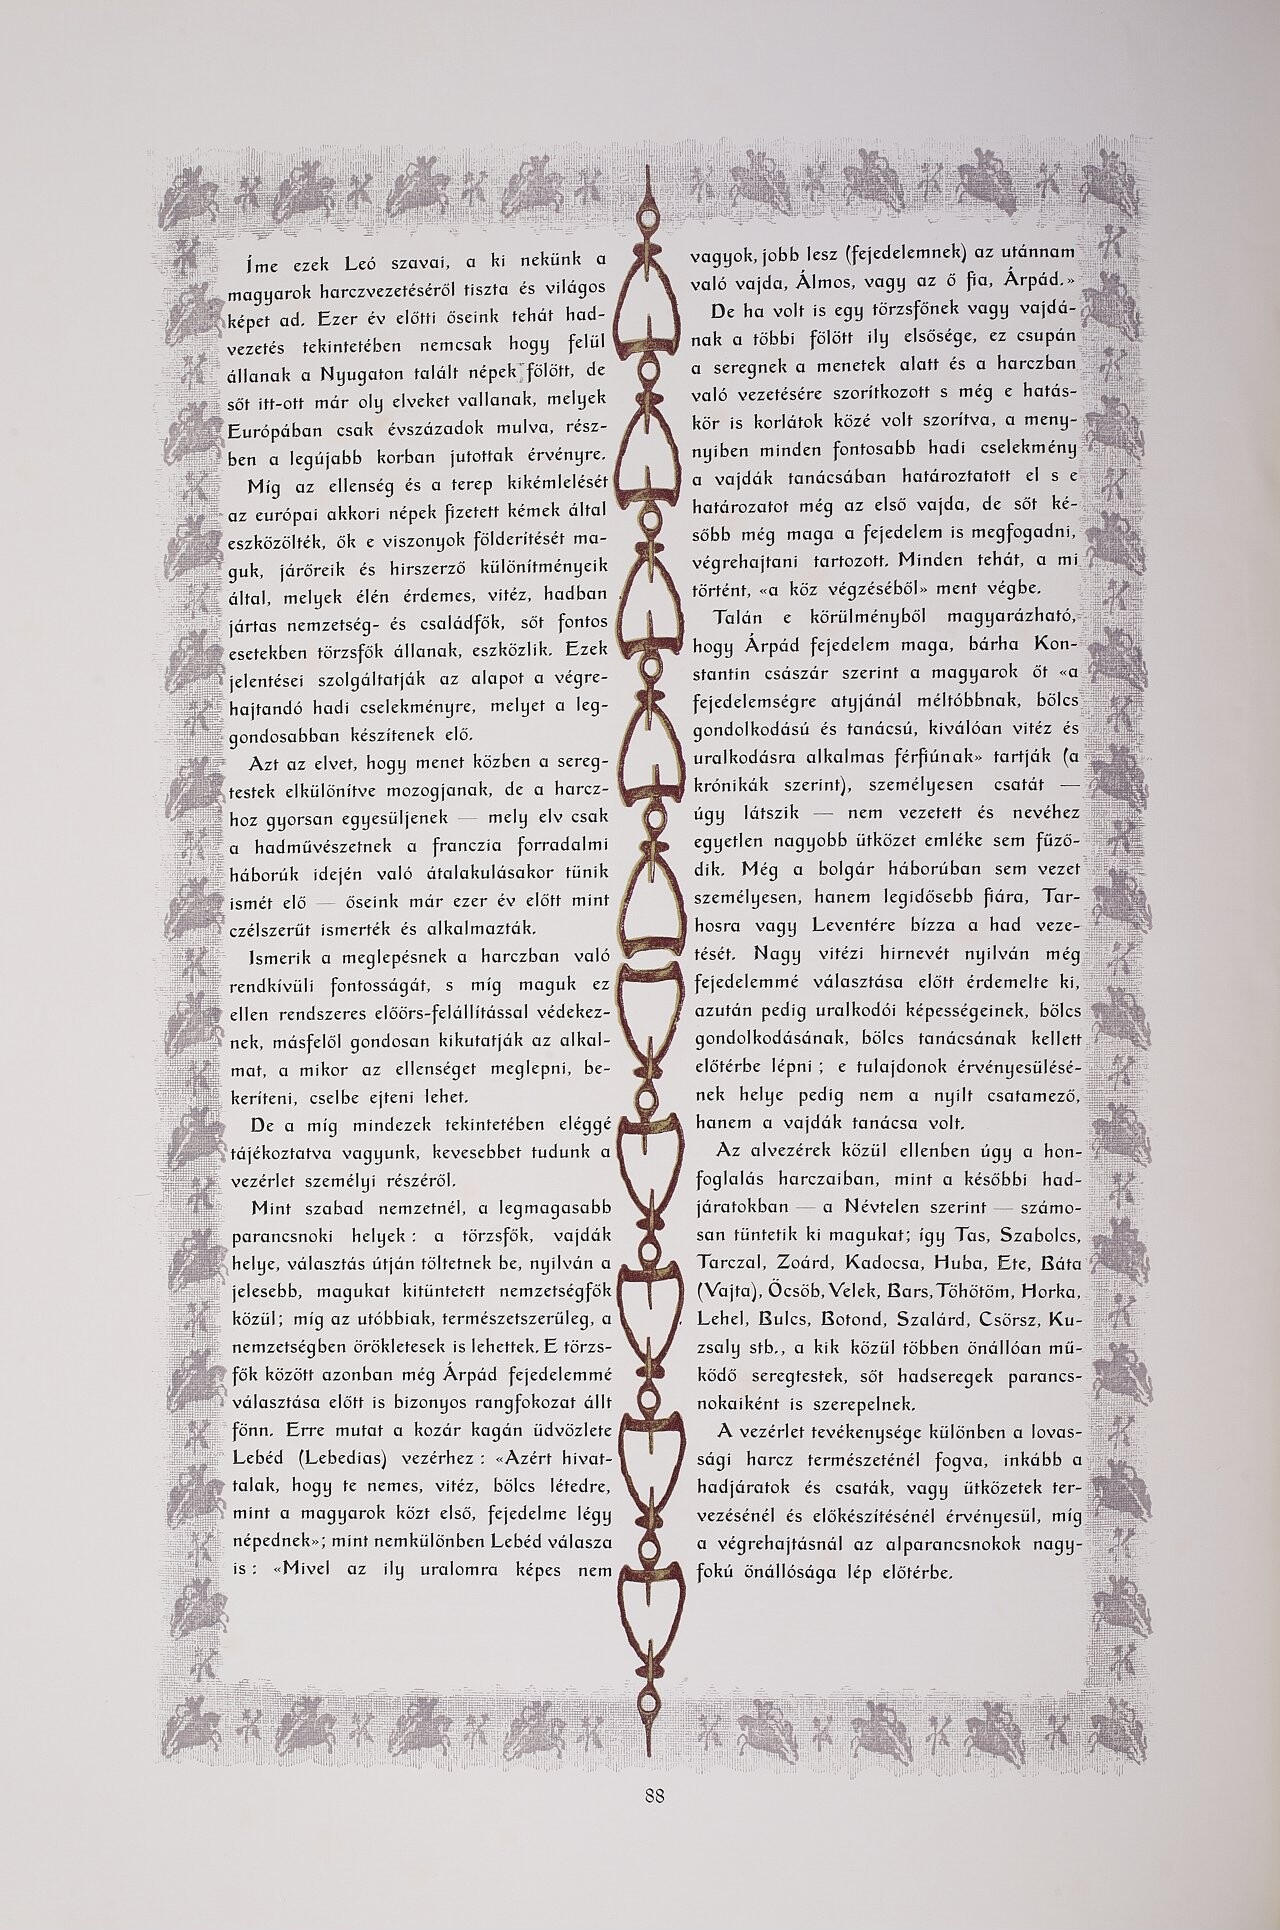 Íme ezek Leó szavai, a ki nekünk a
magyarok harczvezetéséről tiszta és világos
képet ad. Ezer év előtti őseink tehát had-
vezetés tekintetében nemcsak hogy felül
állanak a Nyugaton talált népek fölött, de
sőt itt-ott már oly elveket vallanak, melyek
Európában csak évszázadok mulva, rész-
ben a legújabb korban jutottak érvényre.
Míg az ellenség és a terep kikémlelését
az európai akkori népek fizetett kémek által
eszközölték, ők e viszonyok földerítését ma-
guk, járőreik és hirszerző különítményeik
által, melyek élén érdemes, vitéz, hadban
jártas nemzetség- és családfők, sőt fontos
esetekben törzsfők állanak, eszközlik. Ezek
jelentései szolgáltatják az alapot a végre-
hajtandó hadi cselekményre, melyet a leg-
gondosabban készítenek elő.
Azt az elvet, hogy menet közben a sereg-
testek elkülönítve mozogjanak, de a harcz-
hoz gyorsan egyesüljenek — mely elv csak
a hadművészetnek a franczia forradalmi
háborúk idején való átalakulásakor tünik
ismét elő — őseink már ezer év előtt mint
czélszerűt ismerték és alkalmazták.
Ismerik a meglepésnek a harczban való
rendkívüli fontosságát, s míg maguk ez
ellen rendszeres előörs-felállítással védekez-
nek, másfelől gondosan kikutatják az alkal-
mat, a mikor az ellenséget meglepni, be-
keríteni, cselbe ejteni lehet.
De a míg mindezek tekintetében eléggé
tájékoztatva vagyunk, kevesebbet tudunk a
vezérlet személyi részéről.
Mint szabad nemzetnél, a legmagasabb
parancsnoki helyek : a törzsfők, vajdák
helye, választás útján töltetnek be, nyilván a
jelesebb, magukat kitüntetett nemzetségfők
közül; míg az utóbbiak, természetszerűleg, a
nemzetségben örökletesek is lehettek. E törzs-
fők között azonban még Árpád fejedelemmé
választása előtt is bizonyos rangfokozat állt
fönn. Erre mutat a kozár kagán üdvözlete
Lebéd (Lebedias) vezérhez : «Azért hivat-
talak, hogy te nemes, vitéz, bölcs létedre,
mint a magyarok közt első, fejedelme légy
népednek»; mint nemkülönben Lebéd válasza
is : «Mivel az ily uralomra képes nem
vagyok, jobb lesz (fejedelemnek) az utánnam
való vajda, Álmos, vagy az ő fia, Árpád.»
De ha volt is egy törzsfőnek vagy vajdá-
nak a többi fölött ily elsősége, ez csupán
a seregnek a menetek alatt és a harczban
való vezetésére szorítkozott s még e hatás-
kör is korlátok közé volt szorítva, a meny-
nyiben minden fontosabb hadi cselekmény
a vajdák tanácsában határoztatott el s e
határozatot még az első vajda, de sőt ké-
sőbb még maga a fejedelem is megfogadni,
végrehajtani tartozott. Minden tehát, a mi
történt, «a köz végzéséből» ment végbe.
Talán e körülményből magyarázható,
hogy Árpád fejedelem maga, bárha Kon-
stantin császár szerint a magyarok őt «a
fejedelemségre atyjánál méltóbbnak, bölcs
gondolkodású és tanácsú, kiválóan vitéz és
uralkodásra alkalmas férfiúnak» tartják (a
krónikák szerint), személyesen csatát —
úgy látszik — nem vezetett és nevéhez
egyetlen nagyobb ütközet emléke sem fűző-
dik. Még a bolgár háborúban sem vezet
személyesen, hanem legidősebb fiára, Tar-
hosra vagy Leventére bízza a had veze-
tését. Nagy vitézi hirnevét nyilván még
fejedelemmé választása előtt érdemelte ki,
azután pedig uralkodói képességeinek, bölcs
gondolkodásának, bölcs tanácsának kellett
előtérbe lépni ; e tulajdonok érvényesülésé-
nek helye pedig nem a nyilt csatamező,
hanem a vajdák tanácsa volt.
Az alvezérek közül ellenben úgy a hon-
foglalás harczaiban, mint a későbbi had-
járatokban — a Névtelen szerint — számo-
san tüntetik ki magukat; így Tas, Szabolcs,
Tarczal, Zoárd, Kadocsa, Huba, Ete, Báta
(Vajta), Öcsöb, Velek, Bars, Töhötöm, Horka,
Lehel, Bulcs, Botond, Szalárd, Csörsz, Ku-
zsaly stb., a kik közül többen önállóan mű-
ködő seregtestek, sőt hadseregek parancs-
nokaiként is szerepelnek.
A vezérlet tevékenysége különben a lovas-
sági harcz természeténél fogva, inkább a
hadjáratok és csaták, vagy ütközetek ter-
vezésénél és előkészítésénél érvényesül, míg
a végrehajtásnál az alparancsnokok nagy-
fokú önállósága lép előtérbe.
88